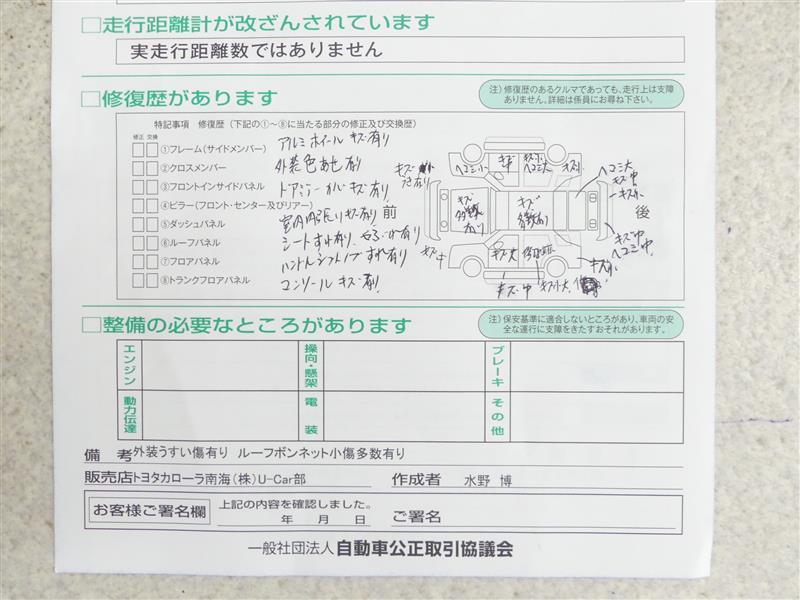 □走行距離計が改ざんされています
実走行距離数ではありません
□修復歴があります
注）修復歴のあるクルマであっても、走行上は支障
ありません。詳細は係員にお尋ね下さい。
特記事項 修復歴（下記の①〜⑧に当たる部分の修正及び交換歴）
修正 交換
①フレーム（サイドメンバー）
②クロスメンバー
③フロントインサイドパネル
④ピラー（フロント・センター及びリアー）
⑤ダッシュパネル
⑥ルーフパネル
⑦フロアパネル
⑧トランクフロアパネル
アルミホイールキズ有り
外装色あせ有り
ドアミラーカバーキズ有り
室内内張りキズ有り
シートすれ有り
ハンドルシフトノブすれ有り
コンソールキズ有り
前
後
キズ
ヘコミ小
キズ小
ヘコミ大
キズ小
ヘコミ大
キズ中
キズ小
キズ
多数
有り
キズ
多数有り
キズ中
キズ大
キズ中
ヘコミ中
キズ小
キズ中
キズ大
□整備の必要なところがあります
注）保安基準に適合しないところがあり、車両の安
全な運行に支障をきたすおそれがあります。
エンジン
操向・懸架
ブレーキ
動力伝達
電装
その他
備考 外装うすい傷有り ルーフボンネット小傷多数有り
販売店 トヨタカローラ南海（株）U-Car部
作成者 水野 博
お客様ご署名欄
上記の内容を確認しました。
年 月 日
ご署名
一般社団法人 自動車公正取引協議会